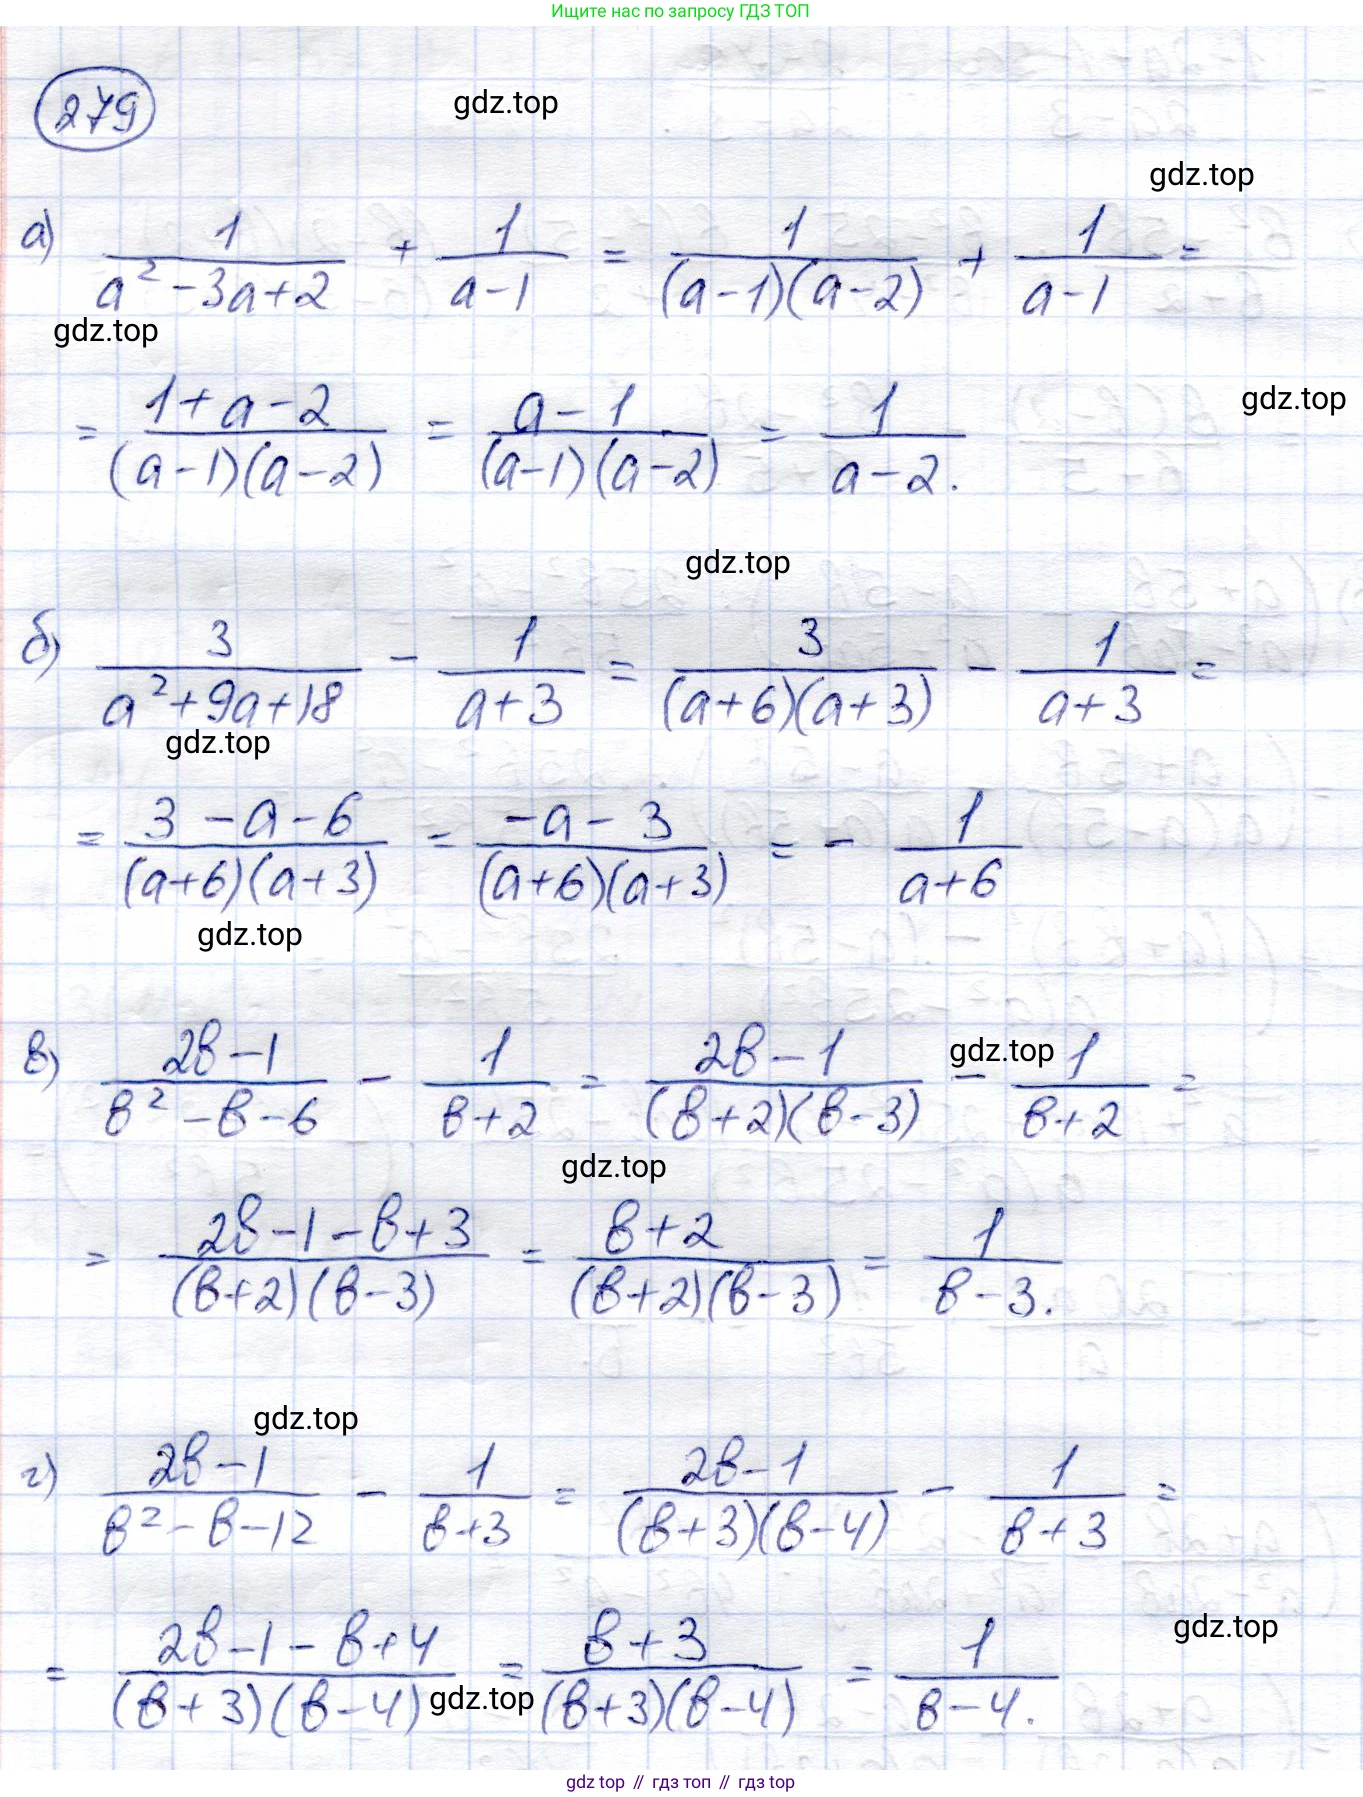 Ищите нас по запросу ГДЗ ТОП
279
gdz.top
gdz.top
а) 1/(a² - 3a + 2) + 1/(a - 1) = 1/((a - 1)(a - 2)) + 1/(a - 1) =
gdz.top
= (1 + a - 2)/((a - 1)(a - 2)) = (a - 1)/((a - 1)(a - 2)) = 1/(a - 2).
gdz.top
gdz.top
б) 3/(a² + 9a + 18) - 1/(a + 3) = 3/((a + 6)(a + 3)) - 1/(a + 3) =
gdz.top
= (3 - a - 6)/((a + 6)(a + 3)) = (-a - 3)/((a + 6)(a + 3)) = - 1/(a + 6)
gdz.top
в) (2в - 1)/(в² - в - 6) - 1/(в + 2) = (2в - 1)/((в + 2)(в - 3)) - 1/(в + 2) =
gdz.top
gdz.top
= (2в - 1 - в + 3)/((в + 2)(в - 3)) = (в + 2)/((в + 2)(в - 3)) = 1/(в - 3).
gdz.top
г) (2в - 1)/(в² - в - 12) - 1/(в + 3) = (2в - 1)/((в + 3)(в - 4)) - 1/(в + 3) =
= (2в - 1 - в + 4)/((в + 3)(в - 4)) = (в + 3)/((в + 3)(в - 4)) = 1/(в - 4).
gdz.top
gdz.top
gdz top // гдз топ // гдз top